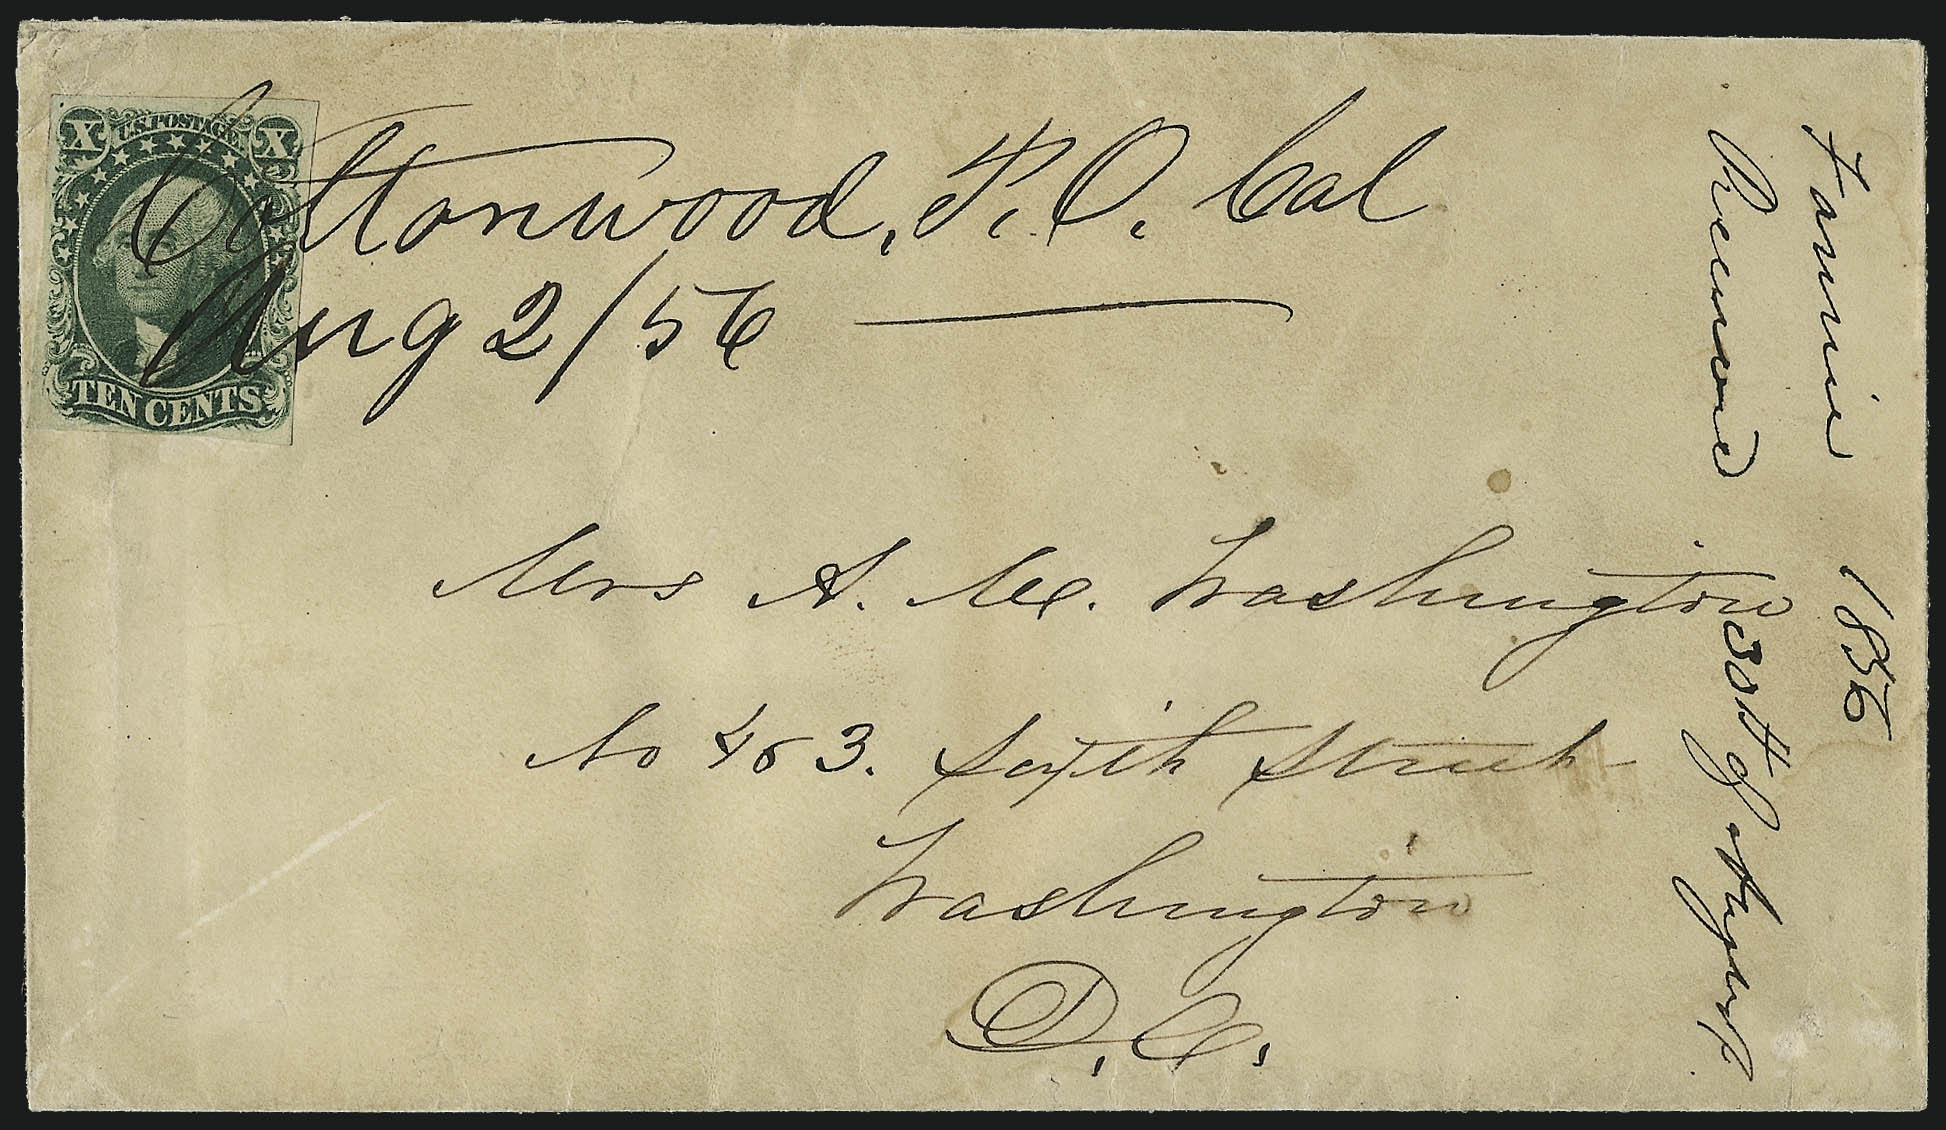 X U.S. POSTAGE X
TEN CENTS
Cottonwood, P.O. Cal
Aug 2/56
Mrs A. M. Washington
No 463. Sixth Street
Washington
D.C.
Fannie 1856
Received 30th of August.